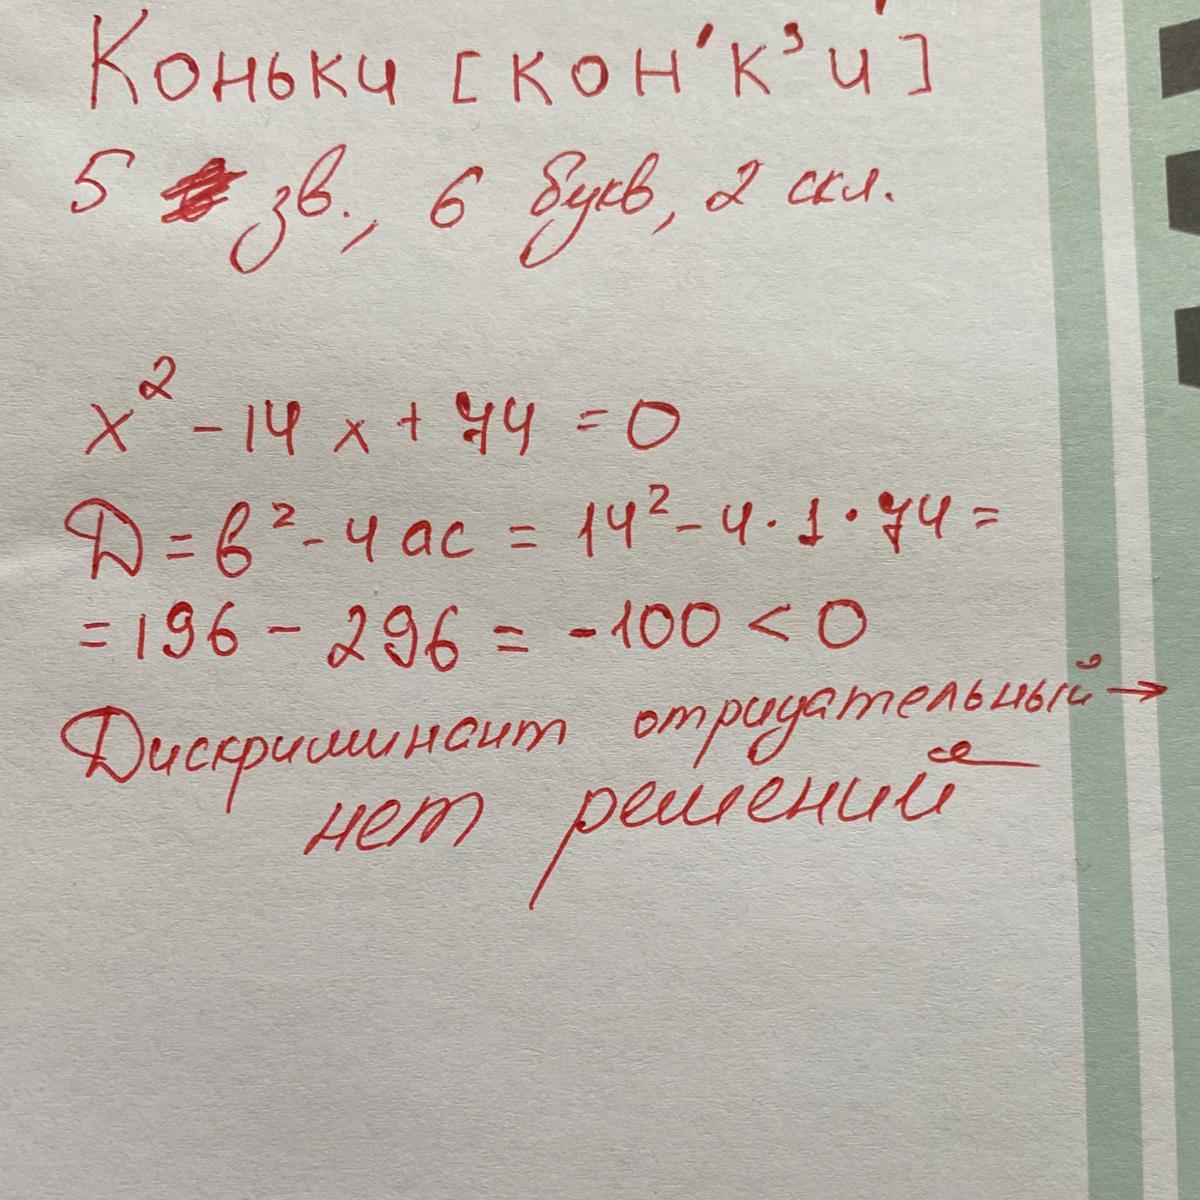 Коньки [кон'к'и']
5 зв., 6 букв, 2 скл.
x² - 14x + 74 = 0
D = b² - 4ac = 14² - 4·1·74 =
= 196 - 296 = -100 < 0
Дискриминант отрицательный →
нет решений